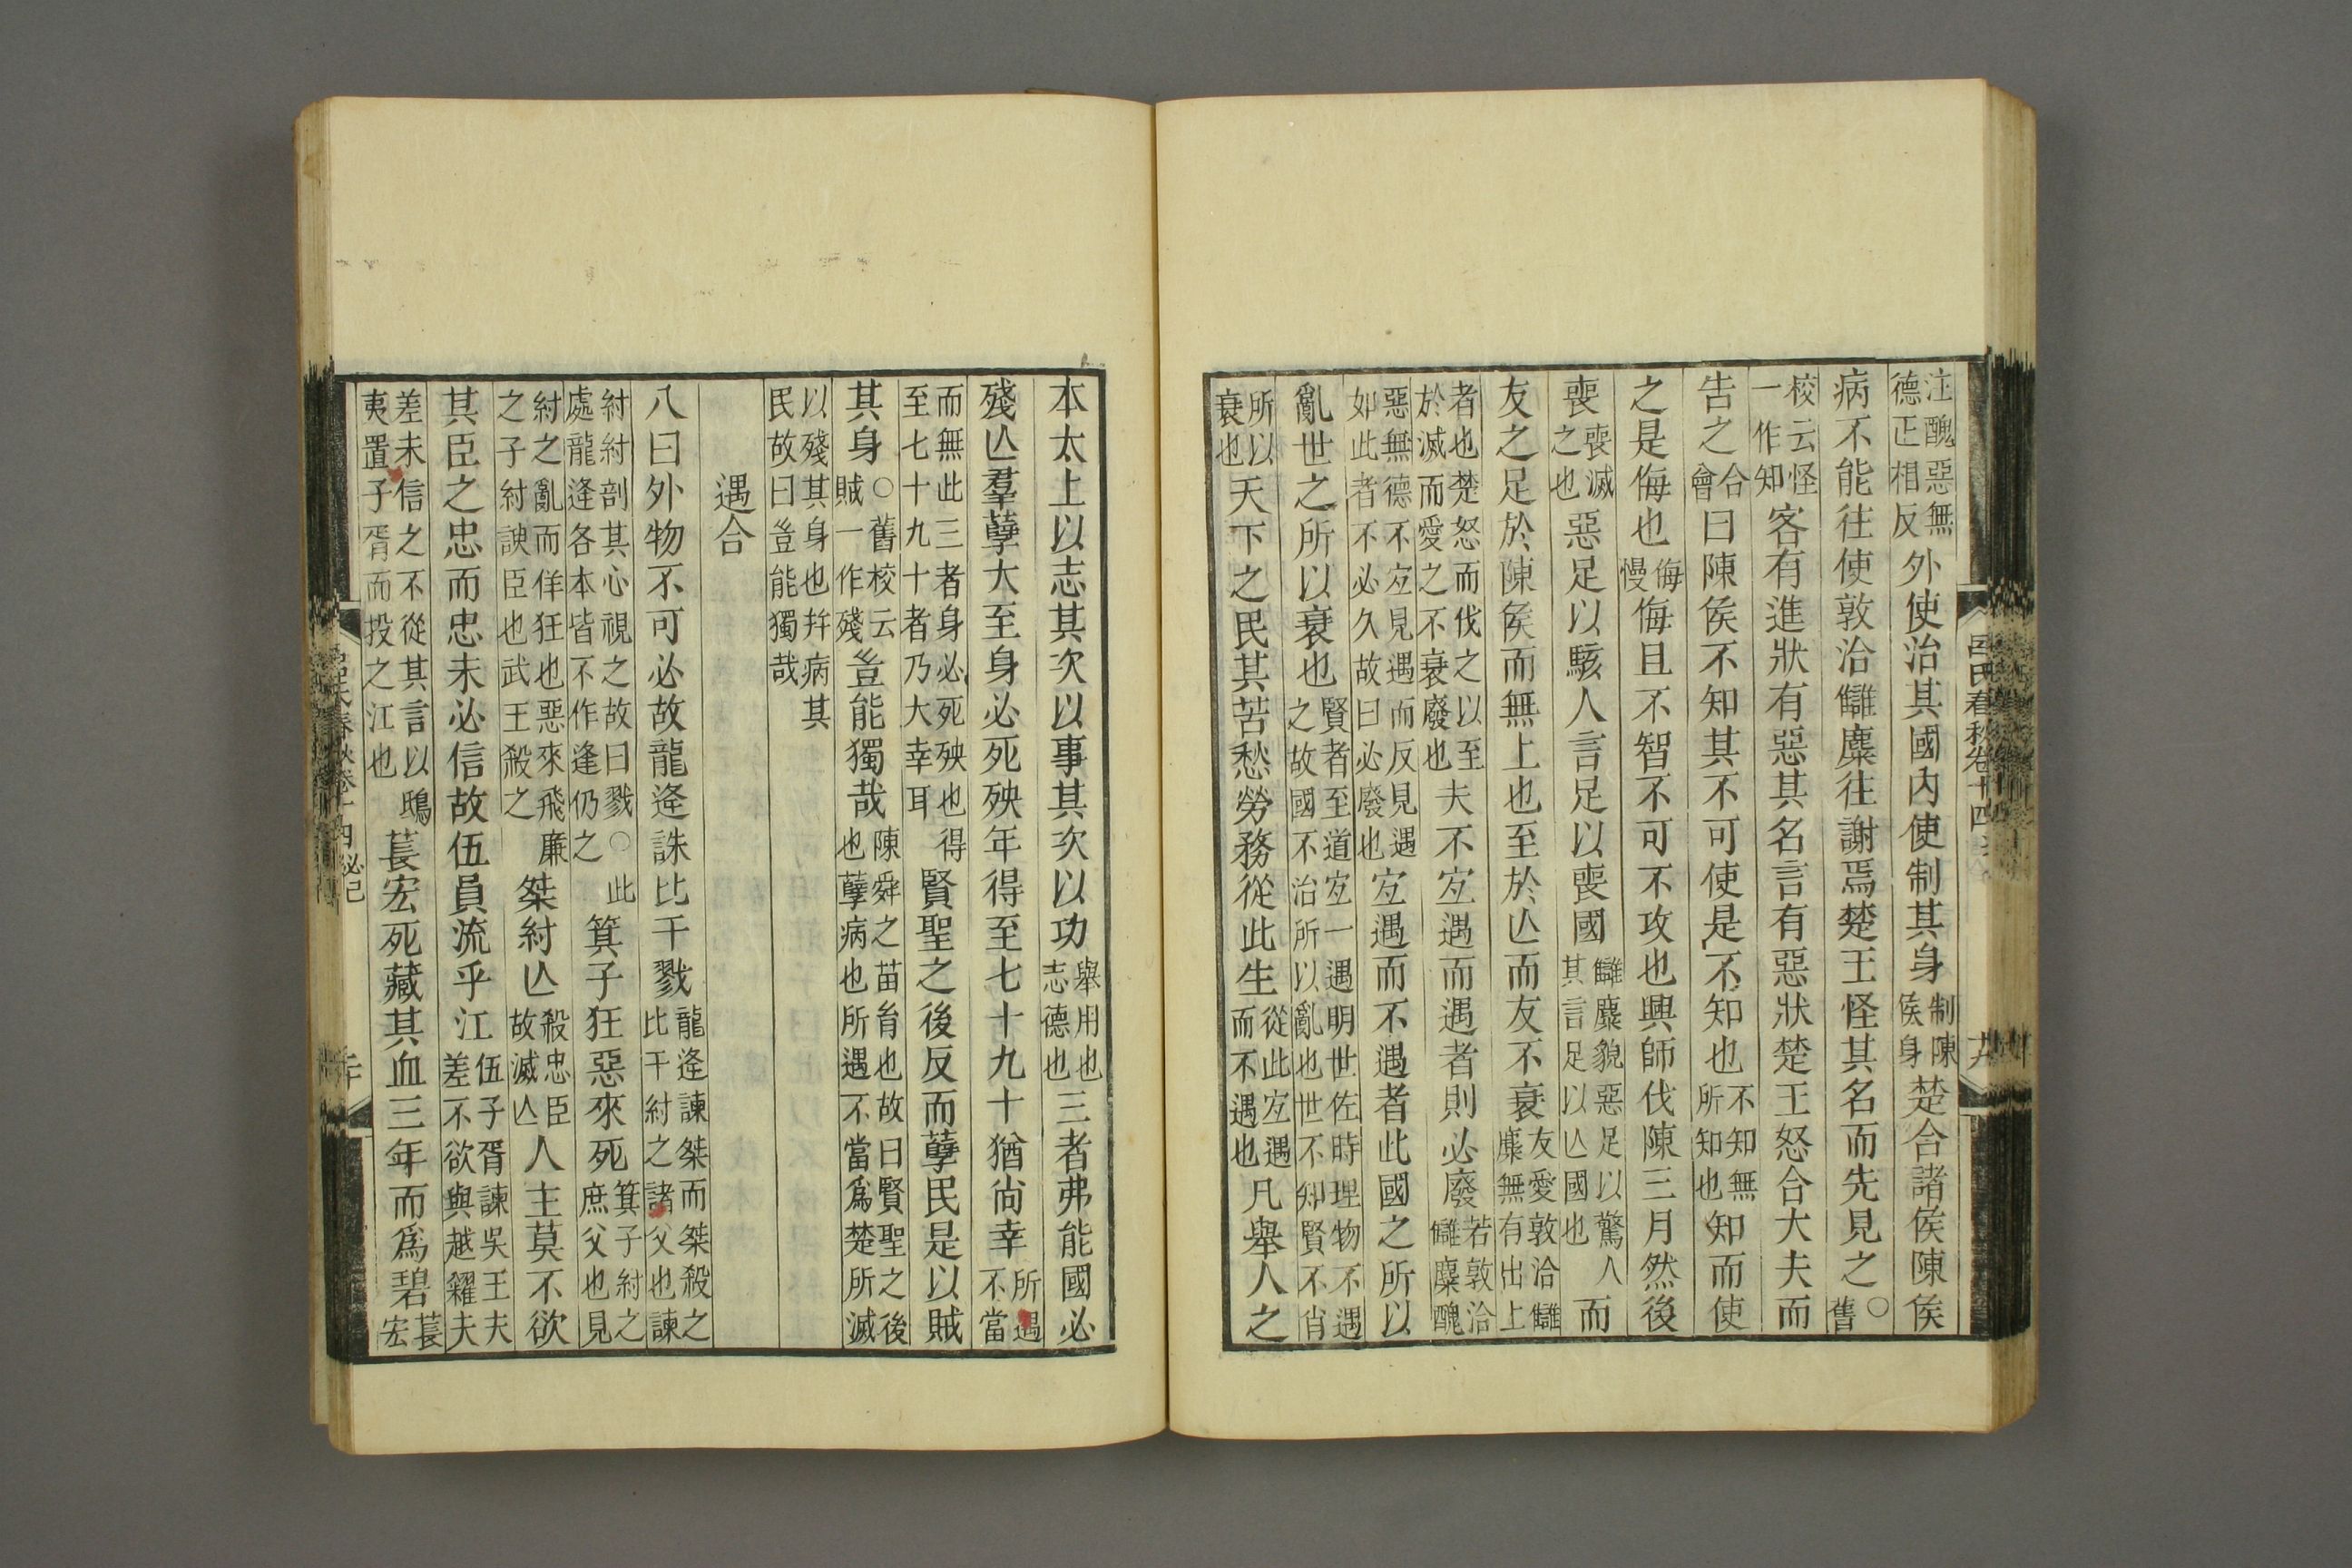 呂氏春秋卷十四
注醜惡無德正相反外使治其國內使制其身制陳侯身楚合諸侯陳侯
病不能往使敦洽讎麋往謝焉楚王怪其名而先見之○舊
校云怪一作知客有進狀有惡其名言有惡狀楚王怒合大夫而
告之合會曰陳侯不知其不可使是不知也不知無所知也知而使
之是侮也侮慢侮且不智不可不攻也興師伐陳三月然後
喪喪滅之也惡足以駭人言足以喪國讎麋貌惡足以驚人其言足以亾國也而
友之足於陳侯而無上也至於亾而友不衰友愛敦洽讎麋無有出上
者也楚怒而伐之以至於滅而愛之不衰廢也夫不宐遇而遇者則必廢若敦洽讎麋醜
惡無德不宐見遇而反見遇如此者不必久故曰必廢也宐遇而不遇者此國之所以
亂世之所以衰也賢者至道宐一遇明世佐時理物不遇之故國不治所以亂也世不知賢不肖
所以衰也天下之民其苦愁勞務從此生從此宐遇而不遇也凡舉人之
本太上以志其次以事其次以功舉用也志德也三者弗能國必
殘亾羣孽大至身必死殃年得至七十九十猶尚幸所遇不當
而無此三者身必死殃也得至七十九十者乃大幸耳賢聖之後反而孽民是以賊
其身○舊校云賊一作殘豈能獨哉陳舜之苗胄也故曰賢聖之後也孽病也所遇不當爲楚所滅
以殘其身也幷病其民故曰豈能獨哉
遇合
八曰外物不可必故龍逄誅比干戮龍逄諫桀而桀殺之比干紂之諸父也諫
紂紂剖其心視之故曰戮○此處龍逄各本皆不作逢仍之箕子狂惡來死箕子紂之庶父也見
紂之亂而佯狂也惡來飛廉之子紂諛臣也武王殺之桀紂亾殺忠臣故滅亾人主莫不欲
其臣之忠而忠未必信故伍員流乎江伍子胥諫吳王夫差不欲與越糴夫
差未信之不從其言以鴟夷置子胥而投之江也萇宏死藏其血三年而爲碧萇宏
呂氏春秋卷十四 必己